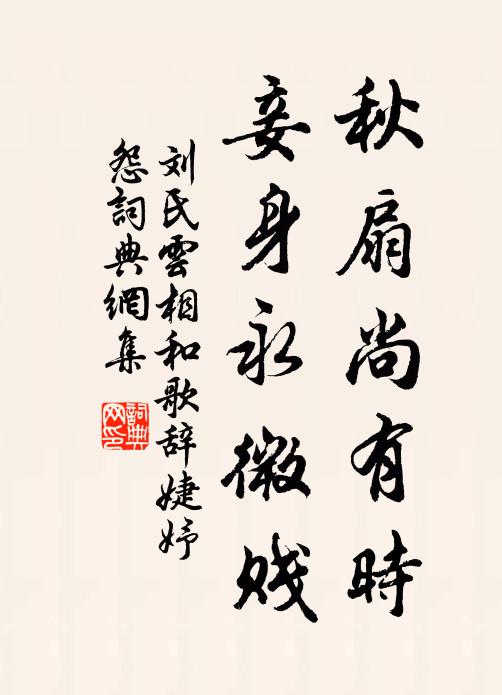 秋扇尚有時
妾身永微賤
刘氏雲相和歌辞婕妤
怨詞典網集
詞典网印